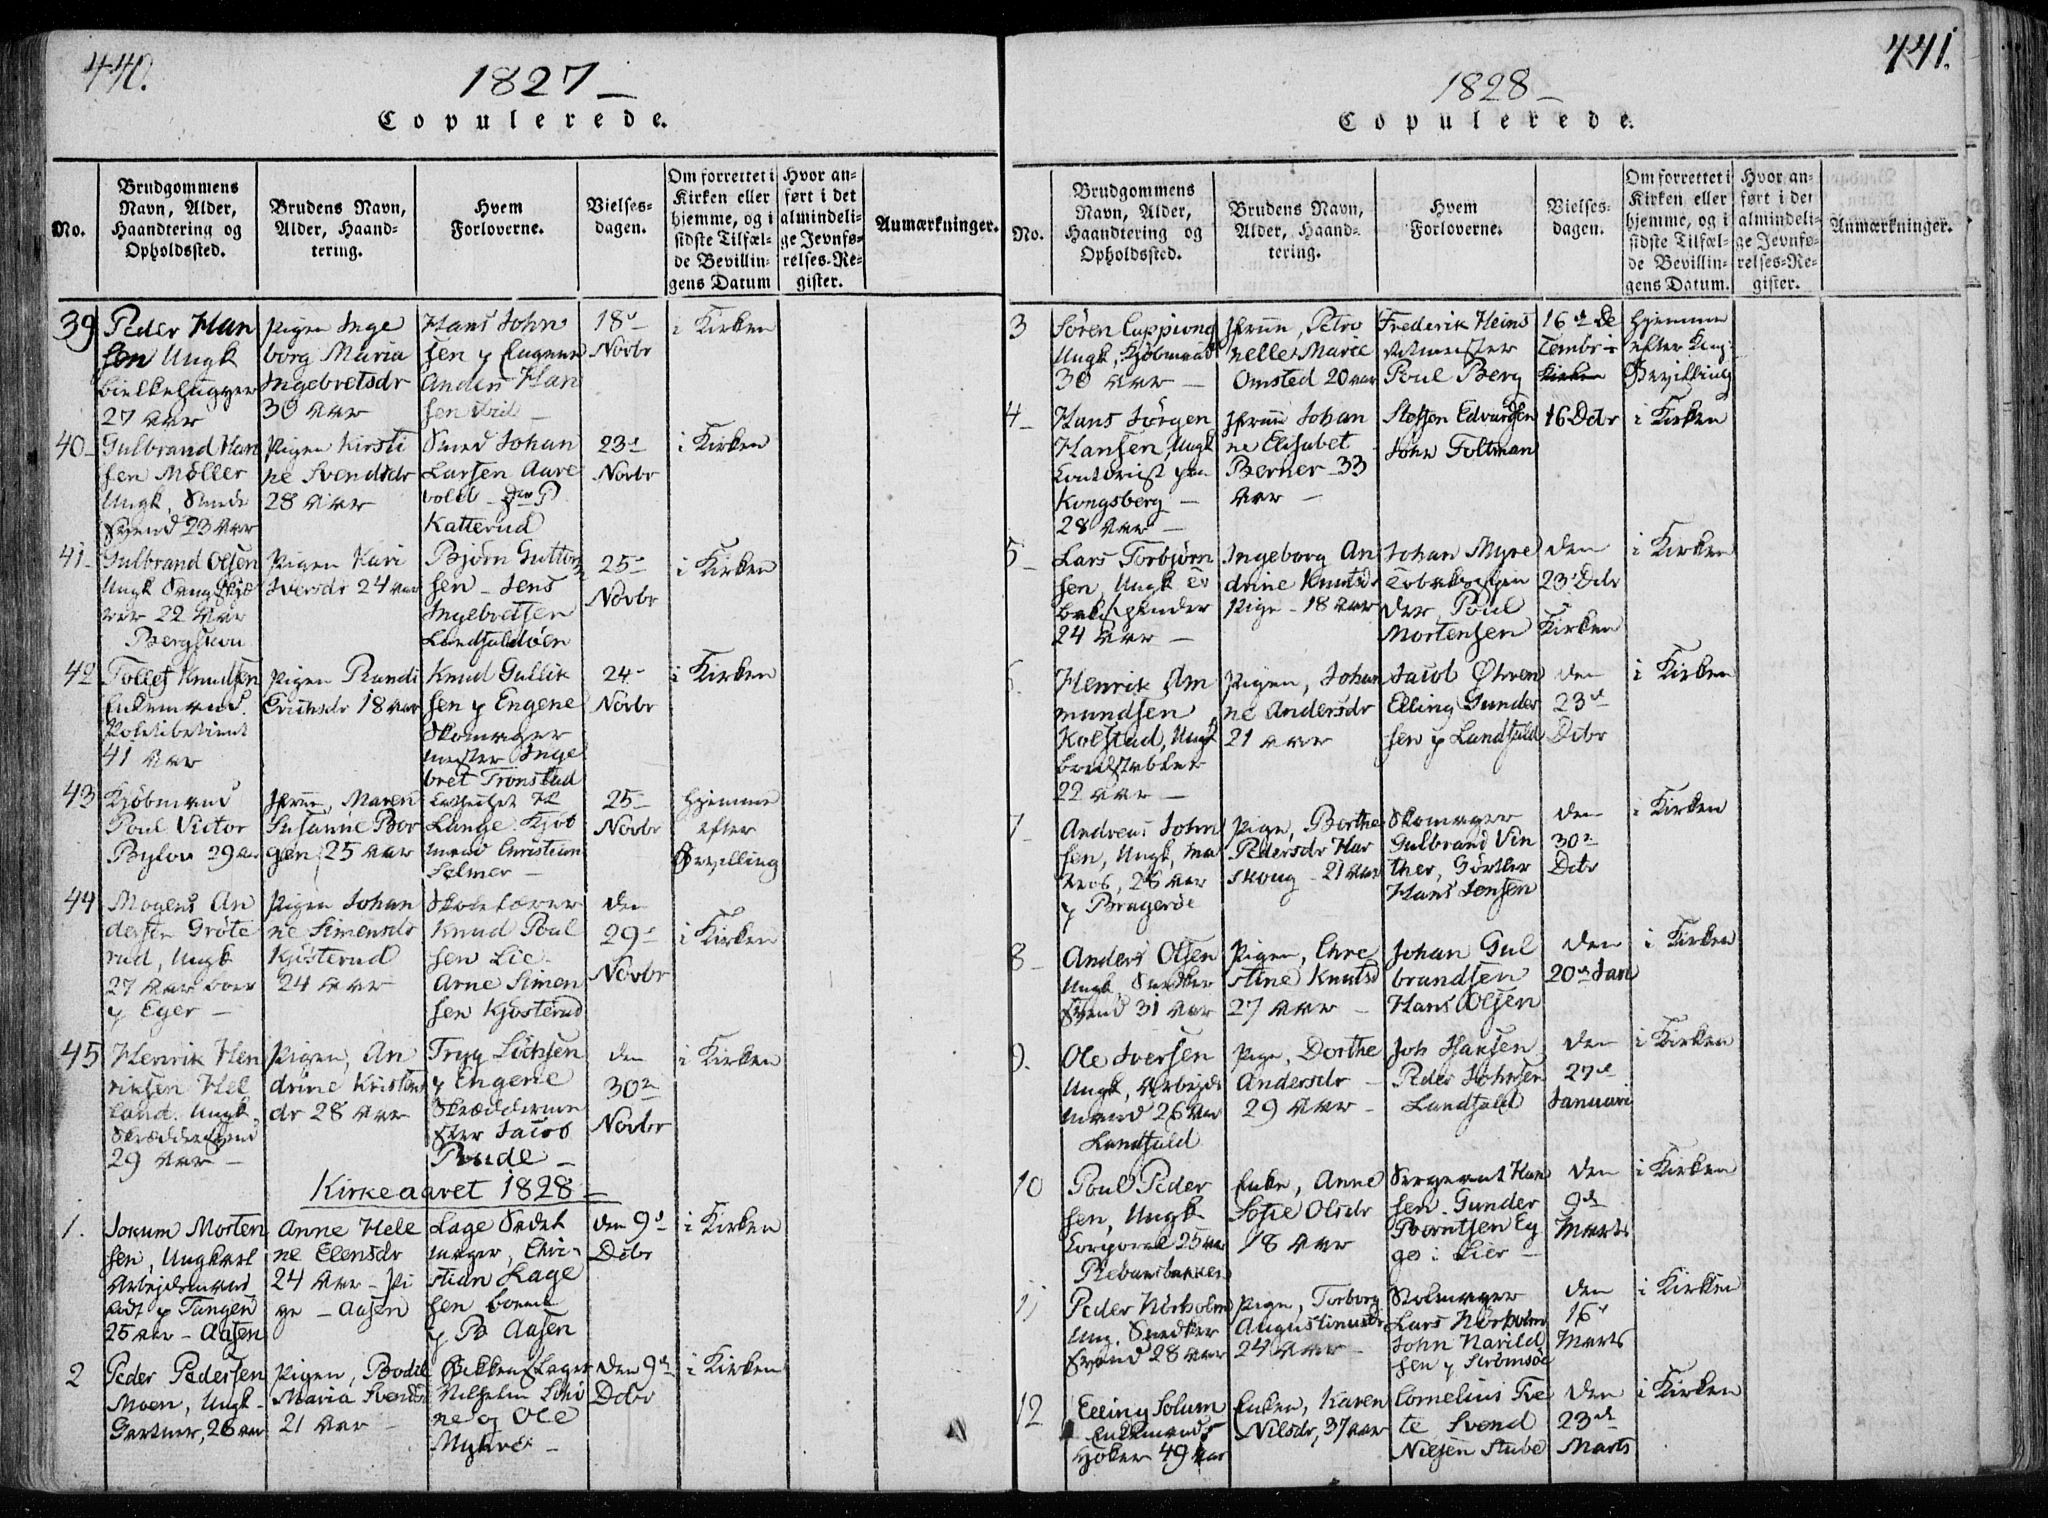 440.
1827 –
Copulerede.
No.
Brudgommens Navn, Alder, Haandtering og Opholdssted.
Brudens Navn, Alder, Haandtering.
Hvem Forloverne.
Vielsesdagen.
Om forrettet i Kirken eller hjemme, og i sidste Tilfælde Bevillingens Datum
Hvor anført i det almindelige Jevnførelses-Register.
Anmærkninger.
39 Peder Han
sen Ungk
bielkehugger
27 Aar
Pigen Inge
borg Maria
Ingebretsdr
30 Aar
Hans John
sen p Engene
Anders Han
sen ibid –
18d
Novbr
i Kirken
40 – Gulbrand Han
sen Møller
Ungk, Smede
Svend 23 Aar
Pigen Kirsti
ne Svendsdr
28 Aar
Smed Johan
Larsen Aare
bold –
Katterud
23d
Novbr
i Kirken
41 – Gulbrand Olsen
Ungk
22 Aar
Pigen Kari
Iversdr 24 Aar
Bjørn Guttorm
sen – Jens
Ingebretsen
Landfaldøen
25 –
Novbr
i Kirken
42 Tollef Knudsen
Enkemand.
Politibetient
41 Aar
Pigen Randi
Erichsdr 18 Aar
Knud Gullik
sen p Engene
Skomager
mester Inge
bret Tronstad
24 –
Novbr
i Kirken
43 Kjøbmand
Poul Victor
Bylov 29 Aar
Jfrue, Maren
Susanne Bor
gen, 25 Aar
Lange. Kjøb
mand Christian
Selmer –
25 –
Novbr
Hjemme
efter
Bevilling
44 Mogens An
dersen Grøte
rud, Ungk
27 Aar boer
p Eger –
Pigen Johan
ne Simensdr
Kjøsterud
24 Aar
Skolelærer
Knud Poul
sen Lie –
Arne Simen
sen Kjøsterud
den
29d
Novbr
i Kirken
45 Henrik Hen
riksen Hel
land. Ungk.
Skræddersvend
29 Aar –
Pigen, An
drine Kristens
dr 28 Aar
Tryg Lochsen
p Engene
Skrædderme
ster Jacob
Poude –
den
30te
Novbr
i Kirken
Kirkeaaret 1828 –
1. Jokum Morten
sen, Ungkarl
Arbejdsmand
født p Tangen
25 Aar – Aasen
Anne Hele
ne Elensdr
24 Aar – Pi
ge – Aasen
Lage Sedel
mager, Chri-
stian Lage
sen boende
p Br Aasen
den 9d
Dcbr
i Kirken
2 Peder Pedersen
Moen, Ungk –
Gartner, 26 Aar
Pigen, Bodil
Maria Svendsdr
21 Aar
Vilhelm
ne og Ole
Myhre –
den 9de
Dcbr
i Kirken
441.
1828 –
Copulerede.
No.
Brudgommens Navn, Alder, Haandtering og Opholdssted.
Brudens Navn, Alder, Haandtering.
Hvem Forloverne.
Vielsesdagen.
Om forrettet i Kirken eller hjemme, og i sidste Tilfælde Bevillingens Datum.
Hvor anført i det almindelige Jevnførelses-Register.
Anmærkninger.
3 Søren
Ungk, Kjøbmand
30 Aar –
Jfrue, Petro
nelle Marie
Omsted 20 Aar
Frederik Heins
Poul Berg
16d De
cembr i
Kirken
Hjemme
efter Kng:
Bevilling
4 – Hans Jørgen
Hansen, Ungk
Contorist paa
Kongsberg –
28 Aar –
Jfrue Johan
ne Elisabet
Berner – 33
Aar –
Steffen Edvardsen
John Foltman
16 Dcbr
i Kirken
5 – Lars Torbjørn
sen, Ungk To
bakspinder
24 Aar –
Ingeborg An
drine Knutsdr
Pige – 18 Aar
Johan Myre
Tobakspin
der Poul
Mortensen
den
23d Dcbr
Kirken
i Kirken
6. Henrik Am
mundsen
Kolstad, Ungk
22 Aar –
Pigen, Johan
ne Andersdr
21 Aar
Jacob Øhren
Elling Gunder
sen p Landfald
den
23d
Dcbr
i Kirken
7 – Andreas John
sen, Ungk, Ma
tros, 28 Aar
p Bragerøe
Pige, Berthe
Pedersdr Har
skoug – 21 Aar
Skomager
Gulbrand Vin
ther, Gørtler
Hans Jensen
den
30te
Dcbr
i Kirken
8 – Anders Olsen
Ungk Snedker
Svend 31 Aar
Pigen, Chri
stine Knutsd
27 Aar –
Johan Gul
brandsen
Hans Olsen
den
20de Jan
i Kirken
9. Ole Iversen
Ungk, Arbejds
mand 26 Aar
Landfald
Pige, Dorthe
Andersdr –
29 Aar –
Joh Hansen
Peder Johnsen
Landfald
den
27de
Januari
i Kirken
10 Poul Peder
sen, Ungk
Corporal 25 Aar
Enke, Anne
Sofie Olsdr
18 Aar
Sergeant Han
sen. Gunder
Berntsen Eg
ge i Lier –
den
9de
Marts
i Kirken
11 Peder Nørholm
Ung. Snedker
Svend 28 Aar
Pige, Torborg
Augustinusdr
24 Aar –
Skomager
Lars Nørholm
John Havild
sen p Strømsøe
den
16d
Marts
i Kirken
12 Elling Solum
Enkemand
Høker 49 Aar
Enken, Karen
Nilsdr, 37 Aar
Cornelius Tve
te Svend
Nielsen Stube
den
23de
Marts
i Kirken